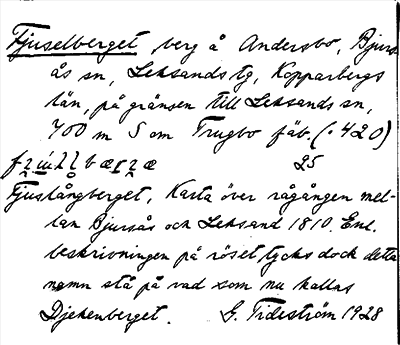 Fjuselberget, berg å Andersbo, Bjurs-
ås sn, Leksands tg, Kopparbergs
län, på gränsen till Leksands sn,
700 m S om Trugbo fäb. (· 420)
25
Fjuslångberget, Karta över rågången mel-
lan Bjursås och Leksand 1810. Enl.
beskrivningen på röset tycks dock detta
namn stå på vad som nu kallas
Djekenberget. G. Tideström 1928